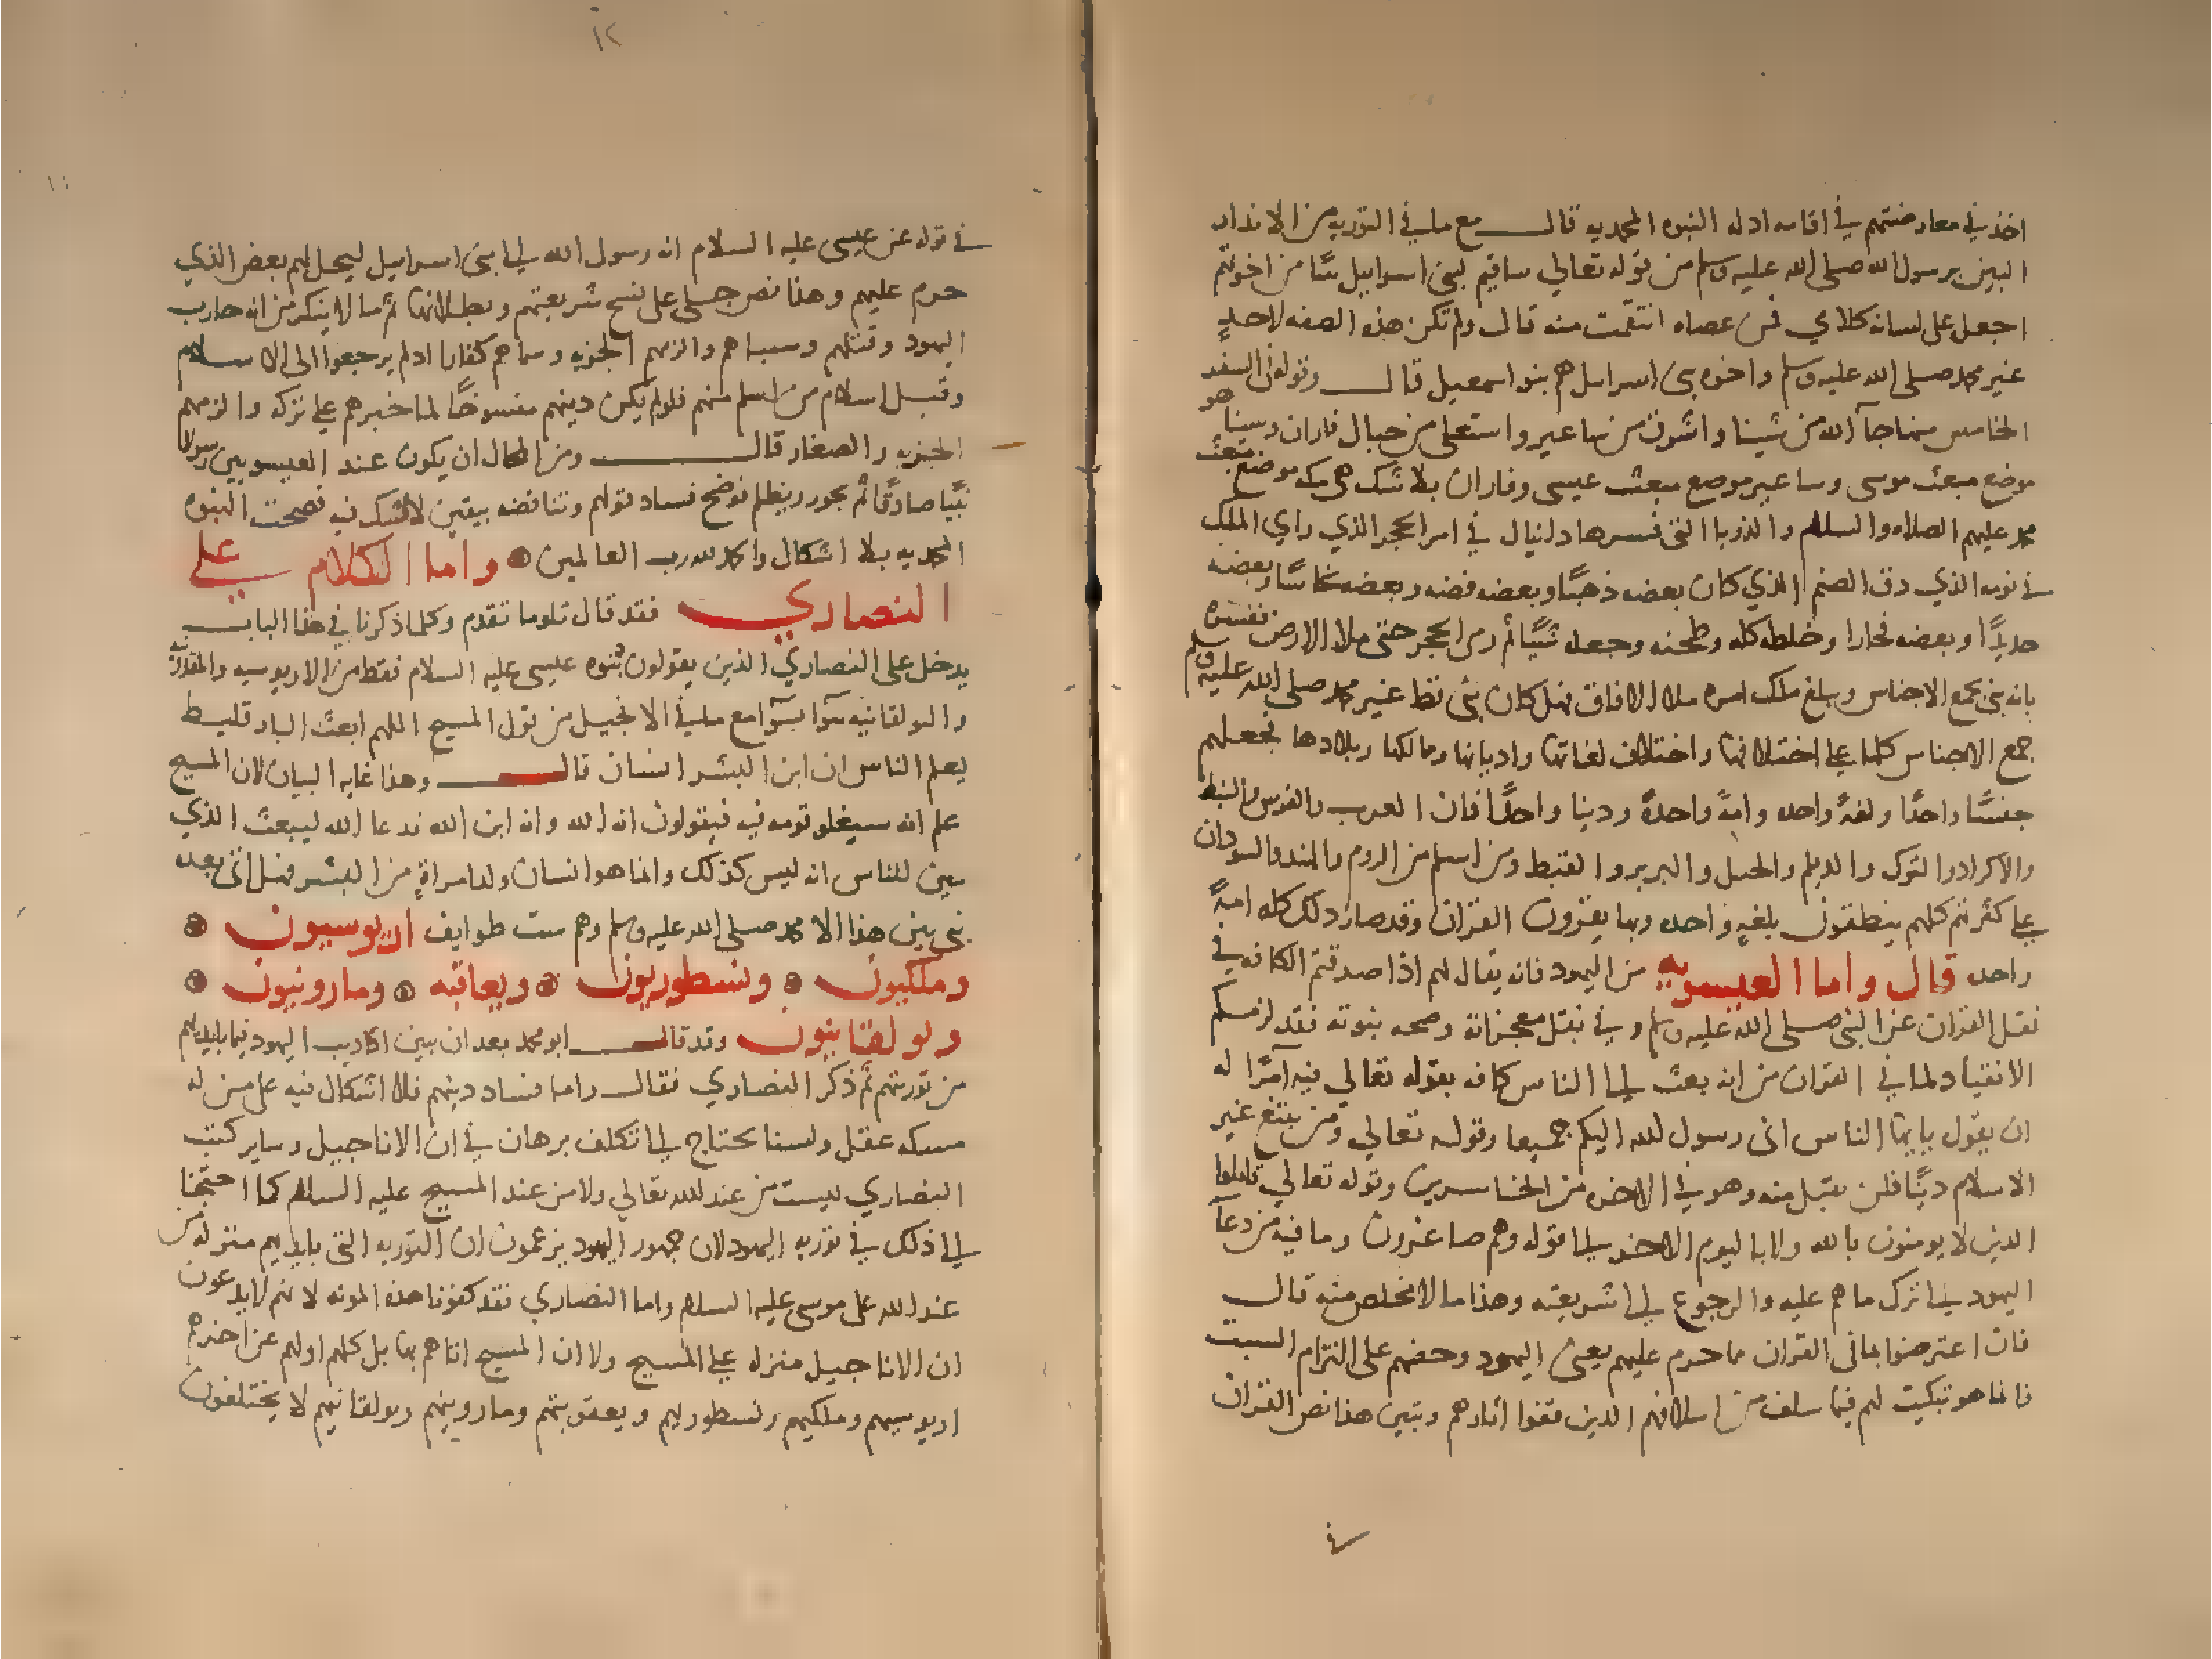 اخذ في معارضتهم في اقامه ادله النبوه المحمديه قال مع ما في التوريه من الانذار
البين برسول الله صلى الله عليه وسلم من قوله تعالي ساقيم لبني اسراييل نبيا من اخوتهم
اجعل على لسانه كلامي فمن عصاه انتقمت منه قال ولم تكن هذه الصفه لاحدٍ
غير محمد صلى الله عليه وسلم واخوه بني اسرايل هم بنو اسمعيل قال وقوله في السفر
الخامس منها جآ الله من سينا واشرق من ساعير واستعلى من جبال فاران وسينا هو
موضع مبعث موسى وساعير موضع مبعث عيسى وفاران بلا شك هي مكه موضع مبعث
محمد عليهم الصلاه والسلام والرويا التي فسرها دانيال في امر الحجر الذي راي الملك
في نومه الذي دق الصنم الذي كان بعضه ذهبًا وبعضه فضه وبعضه نحاسًا وبعضه
حديدًا وبعضه فخارا وخلطه كله وطحنه وجعله شيًا ثم رمى الحجر حتى ملا الارض ففسره
بانه نبي يجمع الاجناس ويبلغ ملك امره ملا الافاق فهل كان نبي قط غير محمد صلى الله عليه وسلم
جمع الاجناس كلها على اختلافها واختلاف لغاتها واديانها وممالكها وبلادها فجعلهم
جنسًا واحدًا ولغهً واحده وامهً واحدهً ودينا واحدًا فان العرب والفرس والنبط
والاكراد والترك والديلم والجبل والبربر والقبط ومن اسلم من الروم والهند والسودان
على كثرتهم كلهم ينطقون بلغهٍ واحده وبها يقرون القران وقد صار ذلك كله امهً
واحده قال واما العيسويه من اليهود فانه يقال لهم اذا صدقتم الكافه في
نقل القران عن النبي صلى الله عليه وسلم وفي نقل معجزاته وصحه نبوته فقد لزمكم
الانقياد لما في القران من انه بعث الى الناس كافه بقوله تعالي فيه آمرًا له
ان يقول يايها الناس اني رسول الله اليكم جميعا وقوله تعالي ومن يبتغ غير
الاسلام دينًا فلن يقبل منه وهو في الاخره من الخاسرين وقوله تعالي قاتلوا
الذين لا يومنون بالله ولا باليوم الاخر الى قوله وهم صاغرون وما فيه من دعآ
اليهود الى ترك ما هم عليه والرجوع الى شريعته وهذا ما لا مخلص منه قال
فان اعترضوا بما في القران مما حرم عليهم يعني اليهود وحضهم على التزام السبت
فانما هو تبكيت لهم فيما سلف من اسلافهم الذين قفوا اثارهم وتبين هذا نص القران
في
١٢
في قوله عن عيسى عليه السلام انه رسول الله الى بني اسراييل ليحل لهم بعض الذي
حرم عليهم وهذا نص جلي على نسخ شريعتهم وبطلانها ثم ما لا ينكر من انه حارب
اليهود وقتلهم وسباهم والزمهم الجزيه وسماهم كفارا اذ لم يرجعوا الى الاسلام
وقبل اسلام من اسلم منهم فلو لم يكن دينهم منسوخًا لما خبرهم على تركه والزمهم
الجزيه والصغار قال ومن المحال ان يكون عند العيسويين رسولا
نبيًا صادقًا ثم يجور ويظلم فوضح فساد قولهم وتناقضه بيقين لا شك فيه فصحت النبوه
المحمديه بلا اشكال والحمد لله رب العالمين واما الكلام على
النصاري فقد قال تلو ما تقدم وكلما ذكرنا في هذا الباب
يدخل على النصاري الذين يقولون بنبوه عيسى عليه السلام فقط من الاريوسيه والمقدونيه
والبولقانيه سوآ بسوآ مع ما في الانجيل من قول المسيح اللهم ابعث البارقليط
يعلم الناس ان ابن البشر انسان قال وهذا غايه البيان لان المسيح
علم انه سيغلو قومه فيه فيقولون انه الله وانه ابن الله فدعا الله ليبعث الذي
يبين للناس انه ليس كذلك وانما هو انسان ولد امراةٍ من البشر فهل اتى بعده
نبي يبين هذا الا محمد صلى الله عليه وسلم وهم ست طوايف اريوسيون
وملكيون ونسطوريون ويعاقبه ومارونيون
وبولقانيون وقد قال ابو محمد بعد ان بين اكاذيب اليهود فيما بايديهم
من توريتهم ثم ذكر النصاري فقال واما فساد دينهم فلا اشكال فيه على من له
مسكه عقل ولسنا نحتاج الى تكلف برهان في ان الاناجيل وساير كتب
النصاري ليست من عند الله تعالي ولا من عند المسيح عليه السلام كما احتجنا
الى ذلك في توريه اليهود لان جمهور اليهود يزعمون ان التوريه التي بايديهم منزله من
عند الله على موسى عليه السلام واما النصاري فقد كفونا هذه المونه لانهم لا يدعون
ان الاناجيل منزله على المسيح ولا ان المسيح اتاهم بها بل كلهم اولهم عن اخرهم
اريوسيهم وملكيهم ونسطوريهم ويعقوبيهم ومارونيهم وبولقانيهم لا يختلفون